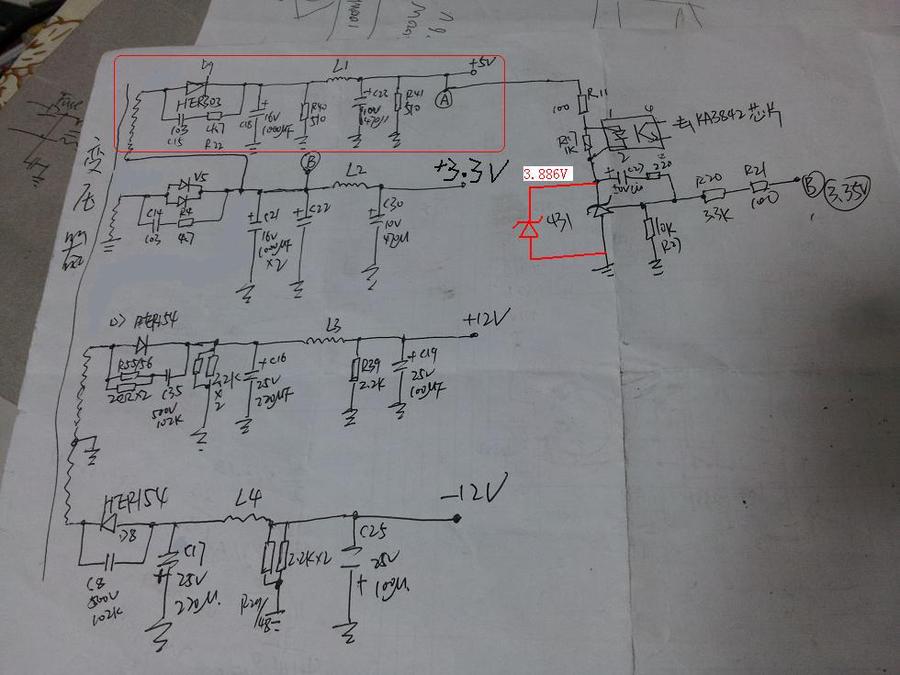 L1
+5V
HER303
103
C15
4R7
R22
C18
16V
1000μF
R40
510
C23
10V
470μ
R41
510
A
100
R11
1K
1
4
2
去KA3842芯片
变压器
V5
C14
103
R4
4R7
B
L2
+3.3V
C21
16V
1000μF
×2
C22
C30
10V
470μ
3.886V
431
C27
50V
220
R20
3.3K
R21
100
B
3.35V
10K
R27
HER154
L3
+12V
R55/56
C35
500V
102K
2.2K
×
2
C16
25V
220μF
R39
2.2K
C19
25V
100μF
HER154
D8
L4
-12V
C8
500V
102K
C17
25V
220μ.
2.2K×2
R29/
48
C25
25V
100μ.